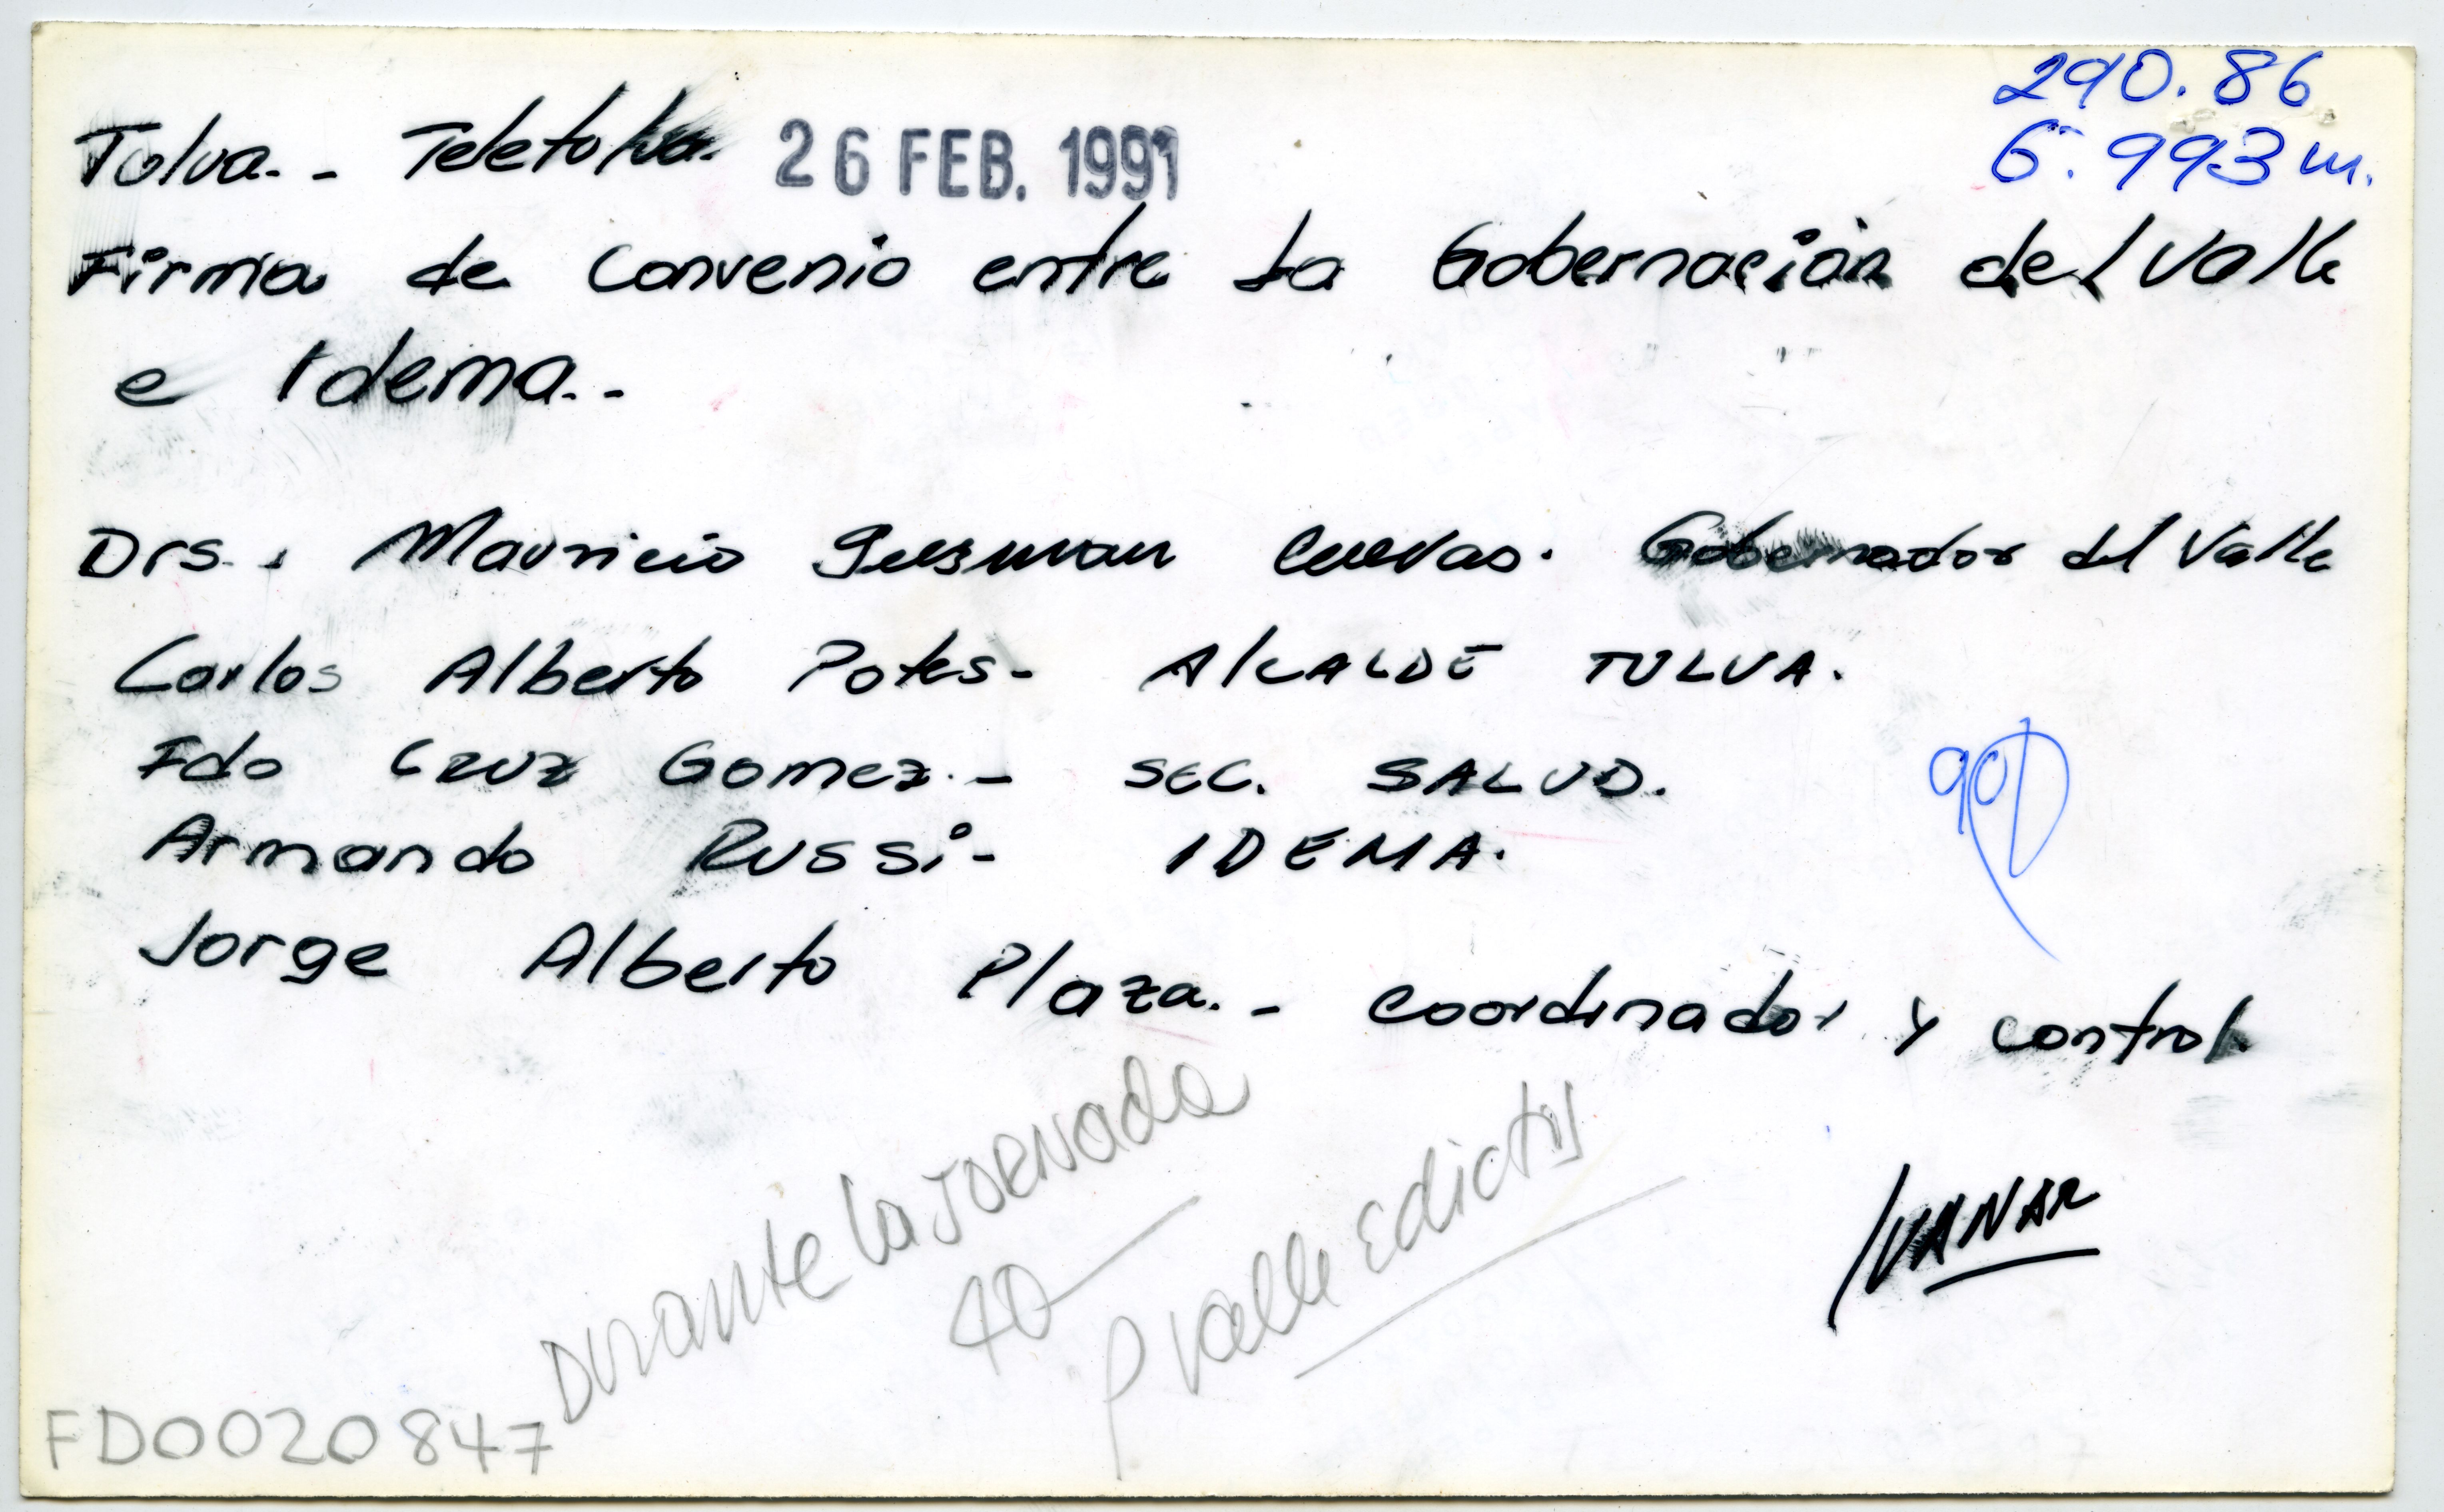 290.86
6.993 m.
Tulua.- Teletulua. 26 FEB. 1991
Firma de Convenio entre la Gobernación del Valle
e Idema.-
Drs. Mauricio Gusman Cuevas. Gobernador del Valle
Carlos Alberto Potes- AlCALDE TULUA.
Fdo CRUZ Gomez.- SEC. SALUD.
Armando Russi- IDEMA.
Jorge Alberto Plaza.- Coordinador y control
Durante la JORNada
P Valle
IVANAR
FD0020847